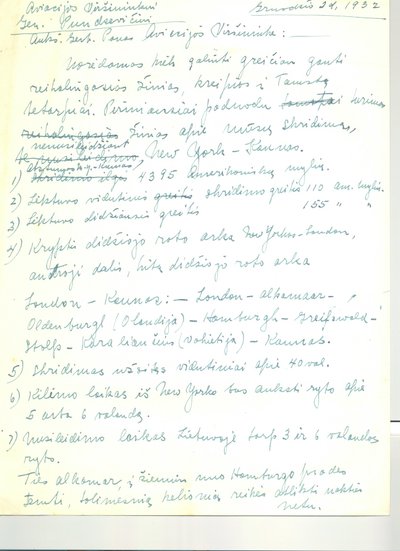 Aviacijos Viršininkui
Gen. Pundzevičiui
Gruodžio 24, 1932
Aukš. Gerb. Ponas Aviacijos Viršininke: —
Norėdamas kiek galint greičiau gauti
reikalingosias žinias, kreipiuos į Tamstą
betarpiai. Pirmiausiai paduodu turimas
reikalingosias žinias apie mūsų skridimą,
nenusileidžiant
New York – Kaunas.
1) skridimo ilgis 4395 amerikoniškų mylių.
2) Lėktuvo vidutinis greitis skridimo greitis 110 am. mylių.
3) Lėktuvo didžiausis greitis 155 " "
4) Kryptis didžiojo rato arka New Yorkas–London,
antroji dalis, kita didžiojo rato arka
London – Kaunas: — London – Alkmaar –
Oldenburgh (Olandija) – Hamburgh – Greifswald –
Stolp – Karaliaučius (Vokietija) – Kaunas.
5) Skridimas užsitęs vidutiniai apie 40 val.
6) Kilimo laikas iš New Yorko bus anksti ryto apie
5 arba 6 valandą.
7) Nusileidimo laikas Lietuvoje tarp 3 ir 6 valandos
ryto.
Ties Alkmar, į žiemius nuo Hamburgo prades
temti, tolimesnią kelionią reikės atlikti nakties
metu.